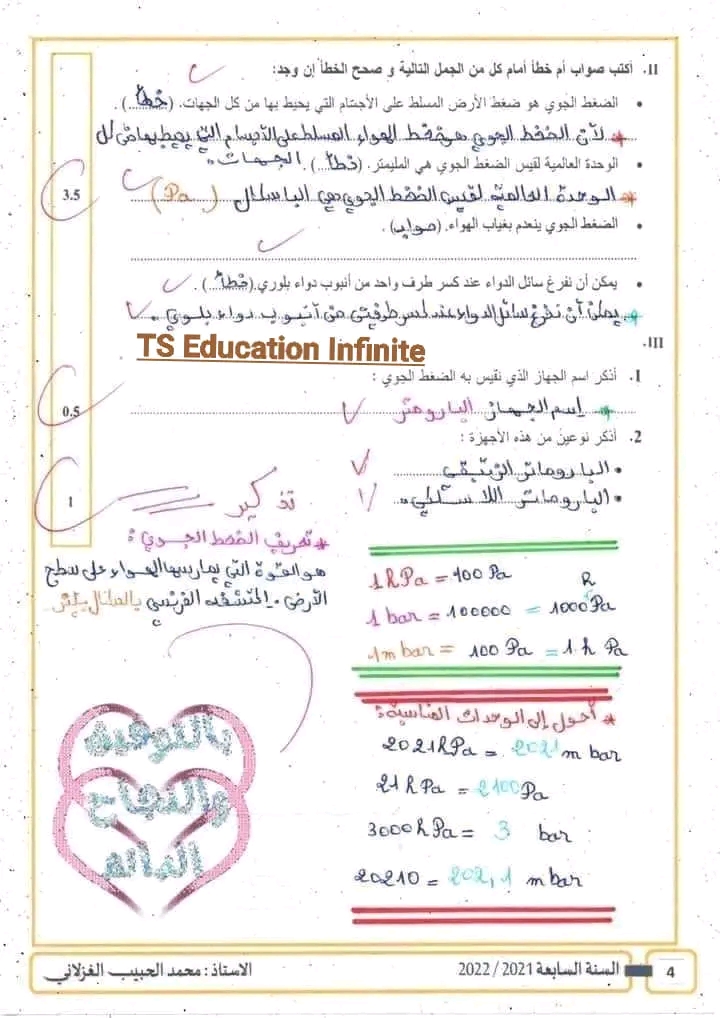 II. أكتب صواب أم خطأ أمام كل من الجمل التالية و صحح الخطأ إن وجد:
• الضغط الجوي هو ضغط الأرض المسلط على الأجسام التي يحيط بها من كل الجهات. (خطأ).
* لأن الضغط الجوي هو ضغط الهواء المسلط على الأجسام التي يحيط بها من كل
الجهات.
• الوحدة العالمية لقيس الضغط الجوي هي المليمتر. (خطأ).
* الوحدة العالمية لقيس الضغط الجوي هي الباسكال (Pa)
3.5
• الضغط الجوي ينعدم بغياب الهواء. (صواب).
• يمكن أن نفرغ سائل الدواء عند كسر طرف واحد من أنبوب دواء بلوري. (خطأ).
* يمكن أن نفرغ سائل الدواء عند كسر طرفين من أنبوب دواء بلوري.
TS Education Infinite
III.
1. أذكر اسم الجهاز الذي نقيس به الضغط الجوي :
* إسم الجهاز البارومتر
0.5
2. أذكر نوعين من هذه الأجهزة :
• البارومتر الزئبقي
• البارومتر اللاسائلي.
1
تذكير
* تعريف الضغط الجوي :
هو القوة التي يمارسها الهواء على سطح
الأرض. إكتشفه الفرنسي
1 hPa = 100 Pa
1 bar = 100000 = 1000 h Pa
1 m bar = 100 Pa = 1 h Pa
* أحول إلى الوحدات المناسبة :
2021 hPa = 2021 m bar
21 h Pa = 2100 Pa
3000 h Pa = 3 bar
20210 = 202,1 m bar
بالتوفيق
والنجاح
الدائم
4
السنة السابعة 2021 / 2022
الاستاذ : محمد الحبيب الغزلاني